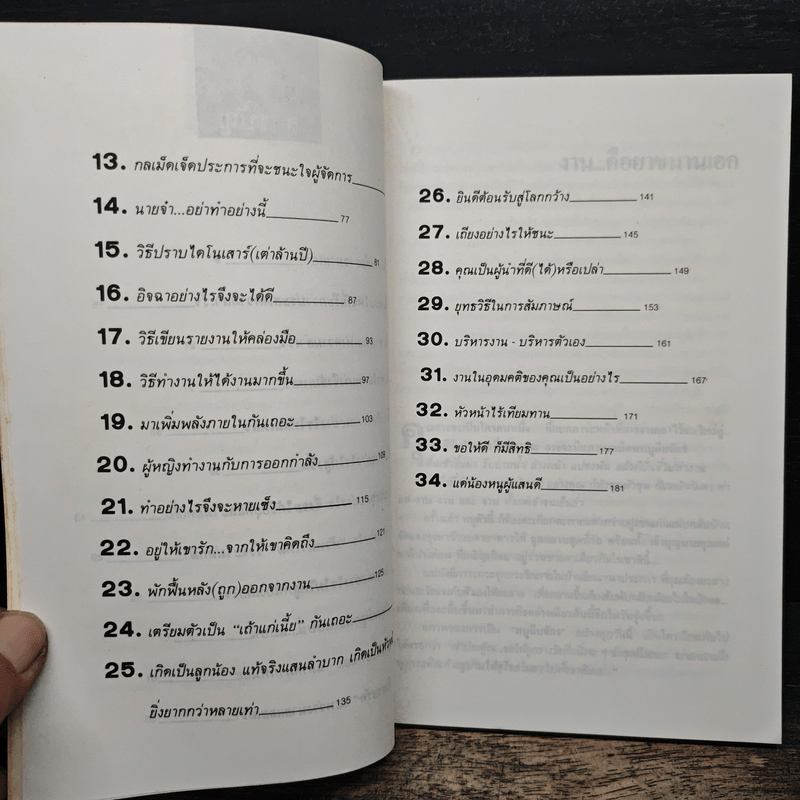 13. กลเม็ดเจ็ดประการที่จะชนะใจผู้จัดการ
14. นายจ๋า...อย่าทำอย่างนี้ 77
15. วิธีปราบไดโนเสาร์(เต่าล้านปี) 81
16. อิจฉาอย่างไรจึงจะได้ดี 87
17. วิธีเขียนรายงานให้คล่องมือ 93
18. วิธีทำงานให้ได้งานมากขึ้น 97
19. มาเพิ่มพลังภายในกันเถอะ 103
20. ผู้หญิงทำงานกับการออกกำลัง 109
21. ทำอย่างไรจึงจะหายเซ็ง 115
22. อยู่ให้เขารัก...จากให้เขาคิดถึง 121
23. พักฟื้นหลัง(ถูก)ออกจากงาน 125
24. เตรียมตัวเป็น “เถ้าแก่เนี้ย” กันเถอะ
25. เกิดเป็นลูกน้อง แท้จริงแสนลำบาก เกิดเป็นหัวหน้า
ยิ่งยากกว่าหลายเท่า 135
26. ยินดีต้อนรับสู่โลกกว้าง 141
27. เถียงอย่างไรให้ชนะ 145
28. คุณเป็นผู้นำที่ดี(ได้)หรือเปล่า 149
29. ยุทธวิธีในการสัมภาษณ์ 153
30. บริหารงาน - บริหารตัวเอง 161
31. งานในอุดมคติของคุณเป็นอย่างไร 167
32. หัวหน้าไร้เทียมทาน 171
33. ขอให้ดี ก็มีสิทธิ 177
34. แด่น้องหนูผู้แสนดี 181